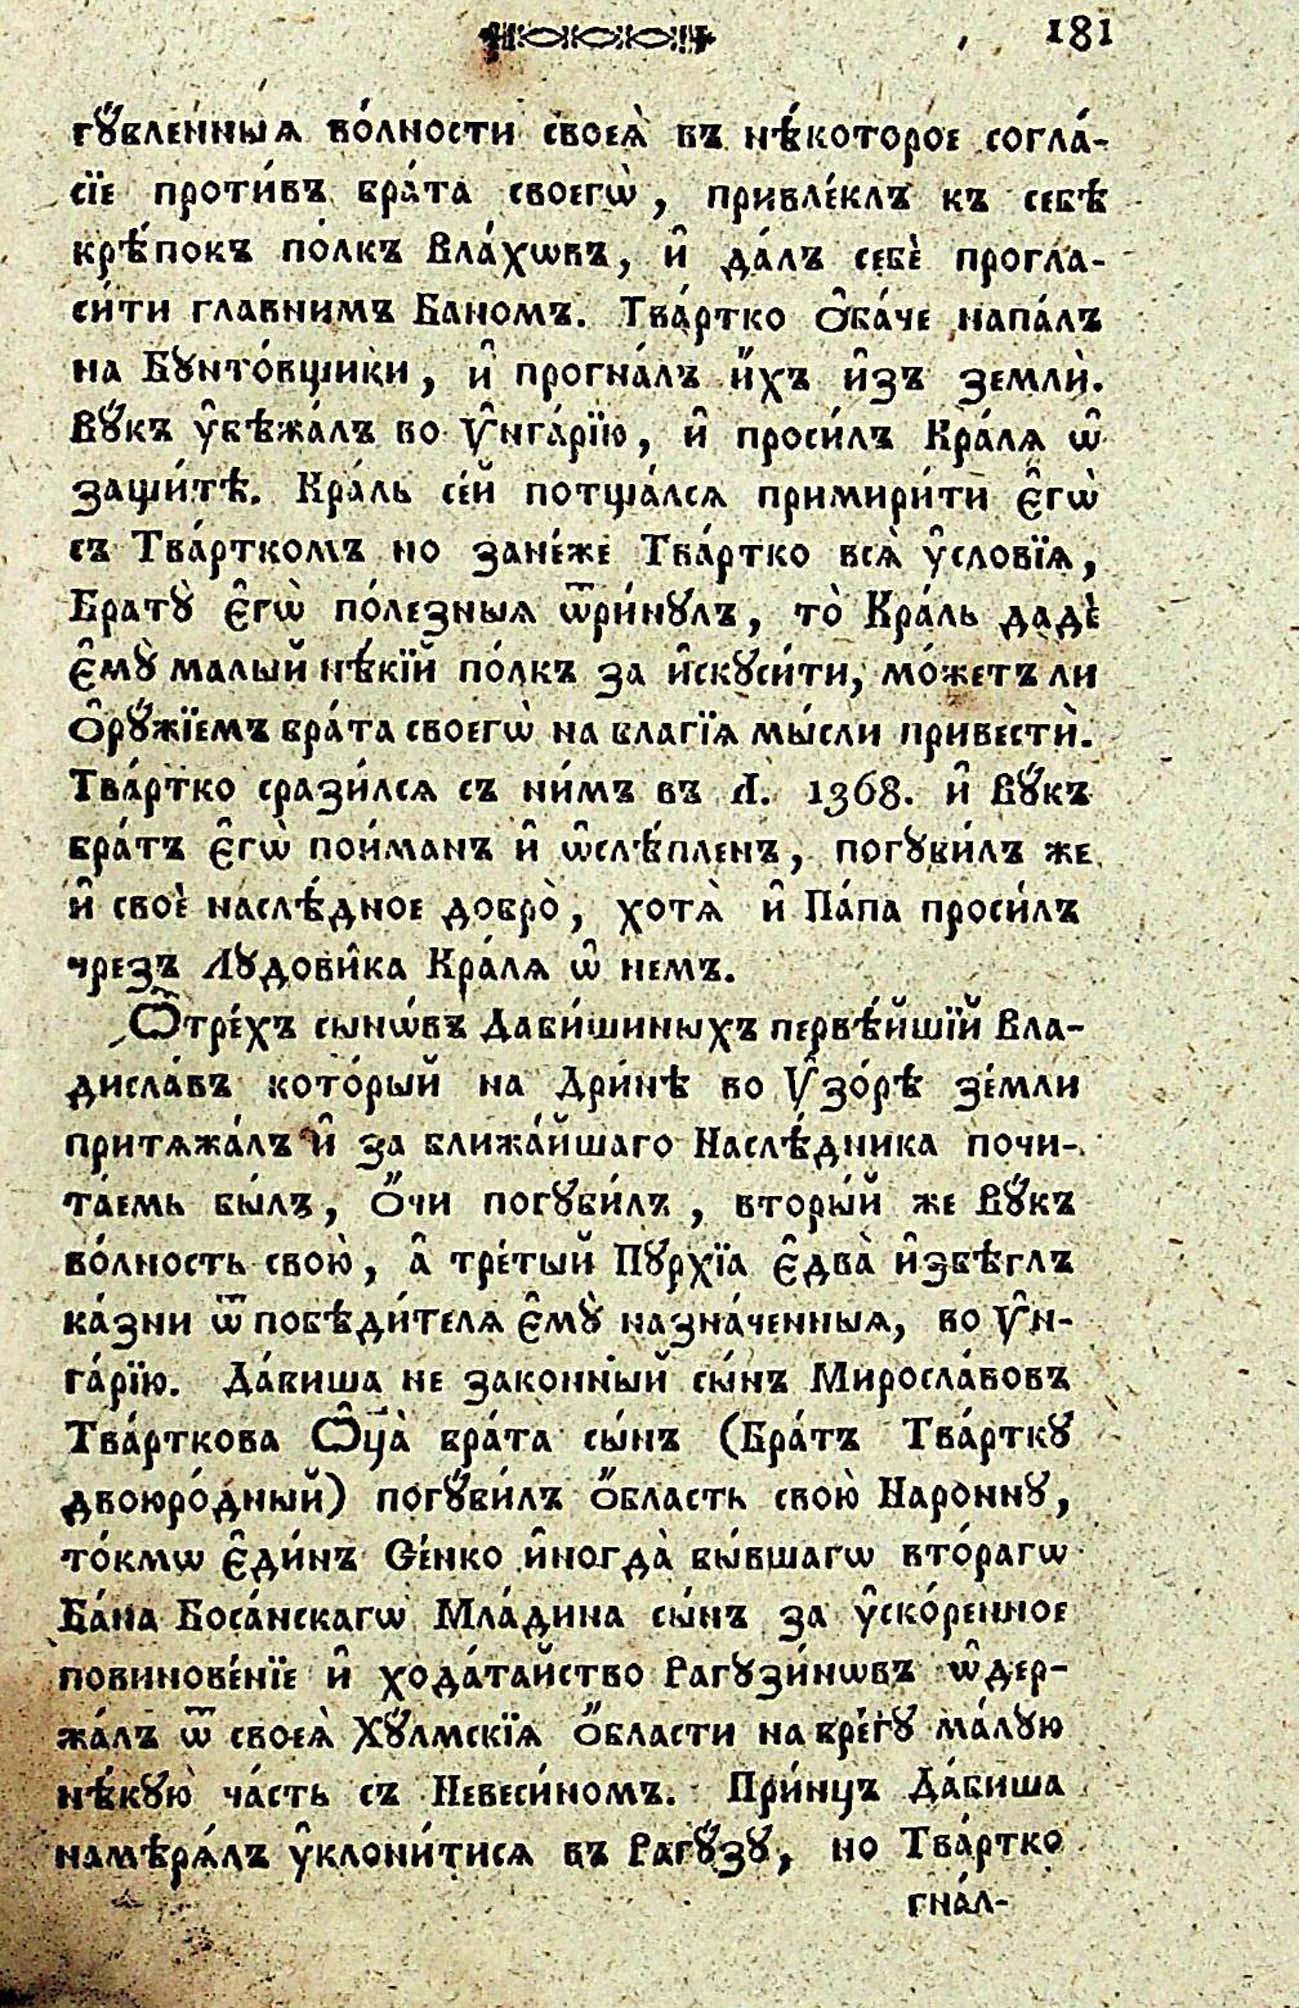 181
гꙋ́бленныѧ во́лности своеѧ̀ въ нѣ́которое согла́-
сїе проти́въ бра́та своегѡ̀, привле́клъ къ себѣ
крѣ́покъ по́лкъ Вла́хѡвъ, и҆ да́лъ себѐ прогла-
си́ти главнимъ Баномъ. Тва́ртко ѻ҆ба́че напа́лъ
на Бꙋнто́вщики, и҆ прогна́лъ и҆́хъ и҆зъ землѝ.
Вꙋ́къ ᲂу҆бѣжа́лъ во Ѵ҆нга́рїю, и҆ проси́лъ Кра́лѧ ѡ҆
защи́тѣ. Кра́ль се́й потща́лсѧ примири́ти є҆гѡ̀
съ Тва́ртком꙽ но зане́же Тва́ртко всѧ̀ ᲂу҆словїѧ,
Братꙋ̀ є҆гѡ̀ по́лезныѧ ѿри́нꙋлъ, то̀ Кра́ль дадѐ
є҆мꙋ̀ малый нѣ́кїй по́лкъ за и҆скꙋси́ти, мо́жетъ ли
ѻ҆рꙋ́жїемъ бра́та своегѡ̀ на благїѧ мы́сли привестѝ.
Тва́ртко срази́лсѧ съ ни́мъ въ Л. 1368. и҆ Вꙋ́къ
бра́тъ є҆гѡ̀ пои́манъ и҆ ѡ҆слѣ́пленъ, погꙋби́лъ же
и҆ своѐ наслѣ́дное добро̀, хотѧ̀ и҆ Па́па проси́лъ
чрезъ Лꙋдови҆ка Кра́лѧ ѡ҆ немъ.
Ѿтре́хъ сынѡ́въ Даби́шиныхъ первѣ́йшїй Вла-
дисла́въ кото́рый на Дри́нѣ во Ѵ҆зо́рѣ зе́мли
притѧжа́лъ и҆ за ближа́йшаго Наслѣ́дника почи-
та́емь бы́лъ, ѻ҆́чи погꙋби́лъ, вторы́й же Вꙋ́къ
во́лность свою̀, а҆ тре́тый Пꙋрхїа є҆два̀ и҆збѣглъ
ка́зни ѿ побѣди́телѧ є҆мꙋ̀ назна́ченныѧ, во Ѵ҆н-
га́рїю. Да́биша не законный сы́нъ Мирославовъ
Тва́рткова Ѻ҆ц҃а̀ бра́та сы́нъ (Бра́тъ Тва́рткꙋ
двоюро́дный) погꙋ́би́лъ ѻ҆́бласть свою̀ Нароннꙋ,
то́кмѡ є҆ди́нъ Се́нко и҆ногда̀ бы́вшагѡ вто́рагѡ
Ба́на Боса́нскагѡ Мла́дина сы́нъ за ᲂу҆ско́ренное
повинове́нїе и҆ хода́тайство Рагꙋзи́нѡвъ ѡ҆дер-
жа́лъ ѿ своеѧ̀ Хꙋ́лмскїѧ ѻ҆́бласти на бре́гꙋ ма́лꙋю
нѣ́кꙋю̀ ча́сть съ Невеси́номъ. При́нцъ Да́биша
намѣрѧ́лъ ᲂу҆клони́тисѧ въ Рагꙋ́зꙋ, но Тва́ртко
гна́л-